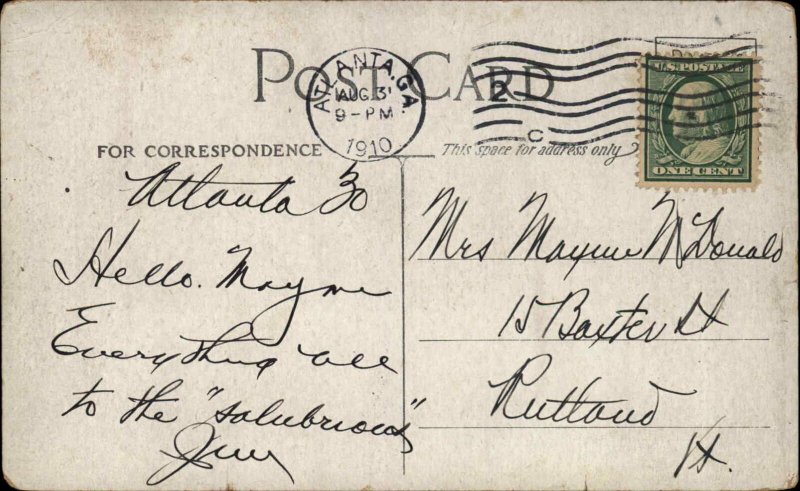 POST CARD
ATLANTA, GA.
AUG 31
9-PM
1910
2
C
U.S. POSTAGE
ONE CENT
FOR CORRESPONDENCE
This space for address only
Atlanta 30
Hello. Mayme
Everything all
to the "salubrious"
Jim
Mrs Mayme McDonald
15 Baxter St
Rutland
Vt.